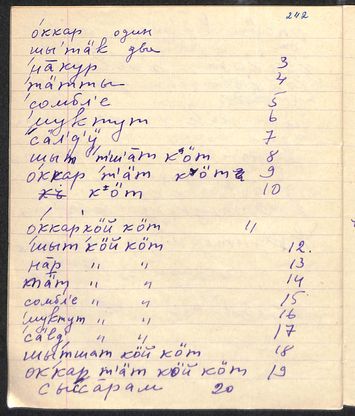 242
о́ккар один
шы́тӓк два
на̄кур 3
тӓтты 4
сомбл'е 5
муктут 6
сӓл'д'ӱ 7
шыт т'ӓт кöт 8
о́ккар т'ӓт кöт 9
кöт 10
о́ккар кöй кöт 11
шыт кöй кöт 12.
на̄р " " 13
тӓт " " 14
сомбл'е " " 15
муктут " " 16
сӓлд " " 17
шы́тшат кöй кöт 18
о́ккар т'ӓт кöй кöт 19
сы̄сарам 20